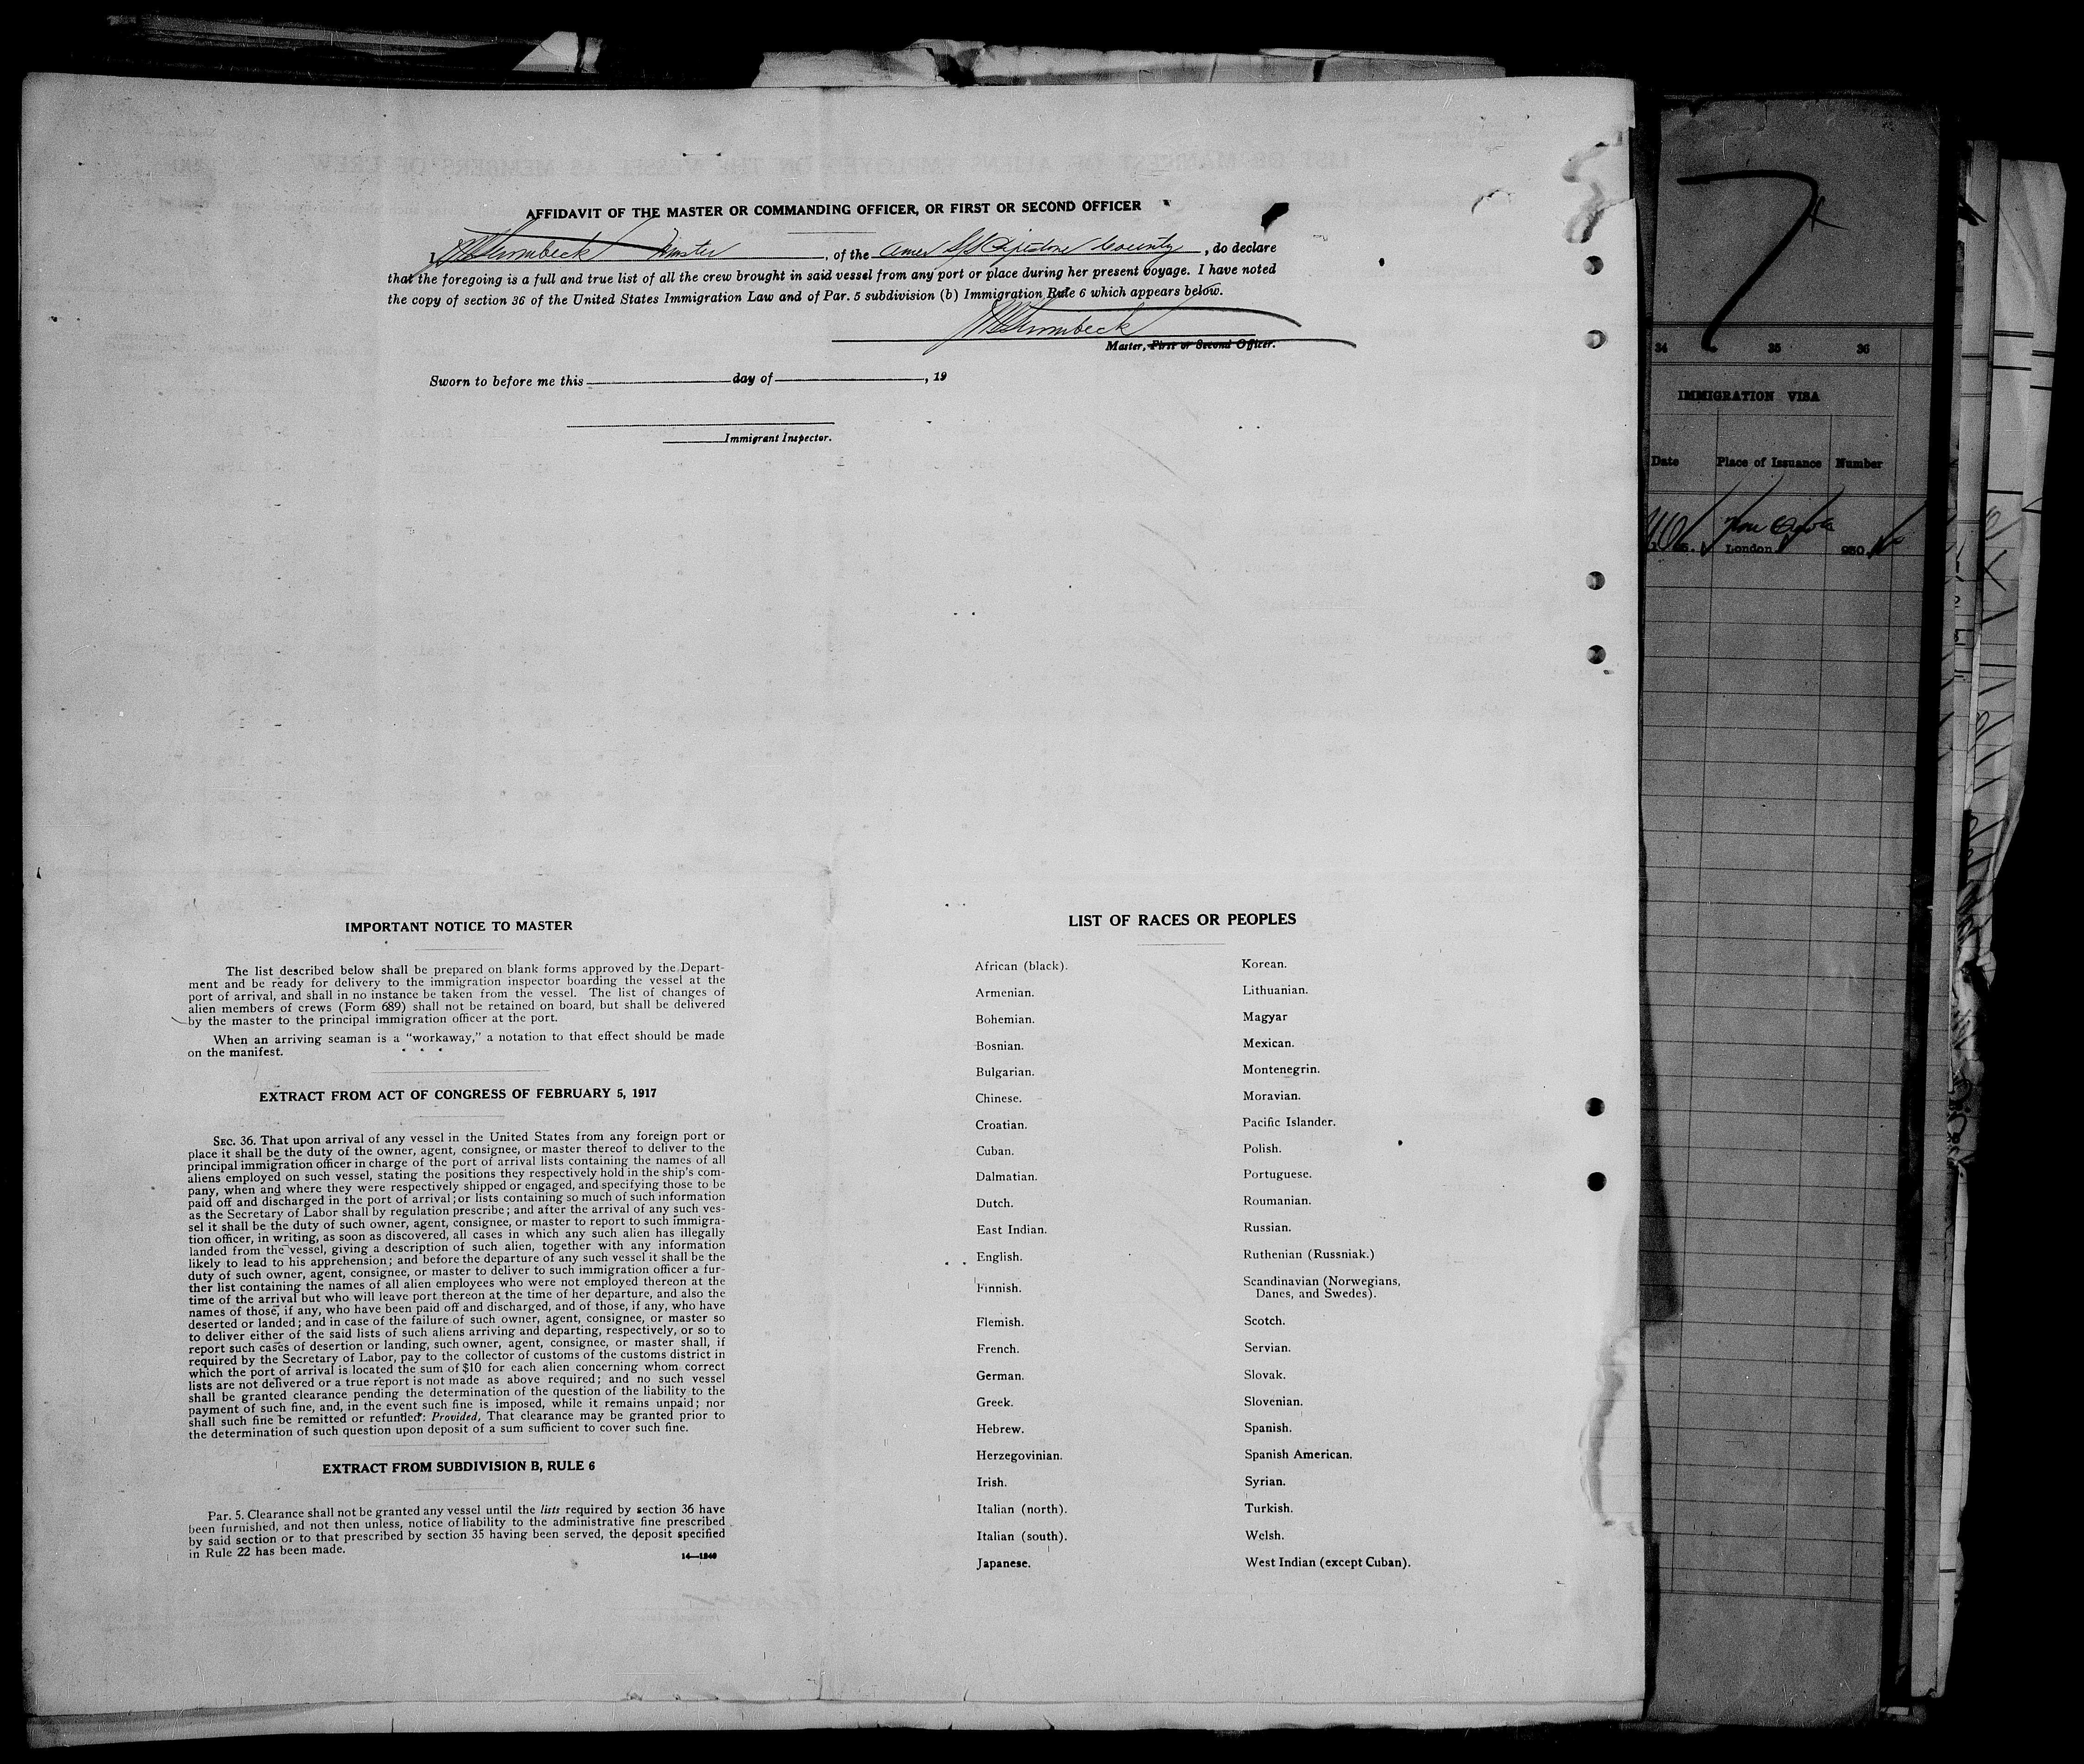 AFFIDAVIT OF THE MASTER OR COMMANDING OFFICER, OR FIRST OR SECOND OFFICER
I, Master, of the Amer S/S County, do declare
that the foregoing is a full and true list of all the crew brought in said vessel from any port or place during her present voyage. I have noted
the copy of section 36 of the United States Immigration Law and of Par. 5 subdivision (b) Immigration Rule 6 which appears below.
Master, First or Second Officer.
Sworn to before me this day of , 19
Immigrant Inspector.
IMPORTANT NOTICE TO MASTER
The list described below shall be prepared on blank forms approved by the Depart-
ment and be ready for delivery to the immigration inspector boarding the vessel at the
port of arrival, and shall in no instance be taken from the vessel. The list of changes of
alien members of crews (Form 689) shall not be retained on board, but shall be delivered
by the master to the principal immigration officer at the port.
When an arriving seaman is a "workaway," a notation to that effect should be made
on the manifest. * * *
EXTRACT FROM ACT OF CONGRESS OF FEBRUARY 5, 1917
SEC. 36. That upon arrival of any vessel in the United States from any foreign port or
place it shall be the duty of the owner, agent, consignee, or master thereof to deliver to the
principal immigration officer in charge of the port of arrival lists containing the names of all
aliens employed on such vessel, stating the positions they respectively hold in the ship's com-
pany, when and where they were respectively shipped or engaged, and specifying those to be
paid off and discharged in the port of arrival; or lists containing so much of such information
as the Secretary of Labor shall by regulation prescribe; and after the arrival of any such ves-
sel it shall be the duty of such owner, agent, consignee, or master to report to such immigra-
tion officer, in writing, as soon as discovered, all cases in which any such alien has illegally
landed from the vessel, giving a description of such alien, together with any information
likely to lead to his apprehension; and before the departure of any such vessel it shall be the
duty of such owner, agent, consignee, or master to deliver to such immigration officer a fur-
ther list containing the names of all alien employees who were not employed thereon at the
time of the arrival but who will leave port thereon at the time of her departure, and also the
names of those, if any, who have been paid off and discharged, and of those, if any, who have
deserted or landed; and in case of the failure of such owner, agent, consignee, or master so
to deliver either of the said lists of such aliens arriving and departing, respectively, or so to
report such cases of desertion or landing, such owner, agent, consignee, or master shall, if
required by the Secretary of Labor, pay to the collector of customs of the customs district in
which the port of arrival is located the sum of $10 for each alien concerning whom correct
lists are not delivered or a true report is not made as above required; and no such vessel
shall be granted clearance pending the determination of the question of the liability to the
payment of such fine, and, in the event such fine is imposed, while it remains unpaid; nor
shall such fine be remitted or refunded: Provided, That clearance may be granted prior to
the determination of such question upon deposit of a sum sufficient to cover such fine.
EXTRACT FROM SUBDIVISION B, RULE 6
Par. 5. Clearance shall not be granted any vessel until the lists required by section 36 have
been furnished, and not then unless, notice of liability to the administrative fine prescribed
by said section or to that prescribed by section 35 having been served, the deposit specified
in Rule 22 has been made.
14—1240
LIST OF RACES OR PEOPLES
African (black).
Armenian.
Bohemian.
Bosnian.
Bulgarian.
Chinese.
Croatian.
Cuban.
Dalmatian.
Dutch.
East Indian.
English.
Finnish.
Flemish.
French.
German.
Greek.
Hebrew.
Herzegovinian.
Irish.
Italian (north).
Italian (south).
Japanese.
Korean.
Lithuanian.
Magyar
Mexican.
Montenegrin.
Moravian.
Pacific Islander.
Polish.
Portuguese.
Roumanian.
Russian.
Ruthenian (Russniak.)
Scandinavian (Norwegians,
Danes, and Swedes).
Scotch.
Servian.
Slovak.
Slovenian.
Spanish.
Spanish American.
Syrian.
Turkish.
Welsh.
West Indian (except Cuban).
34 35 36
IMMIGRATION VISA
Date Place of Issuance Number
London